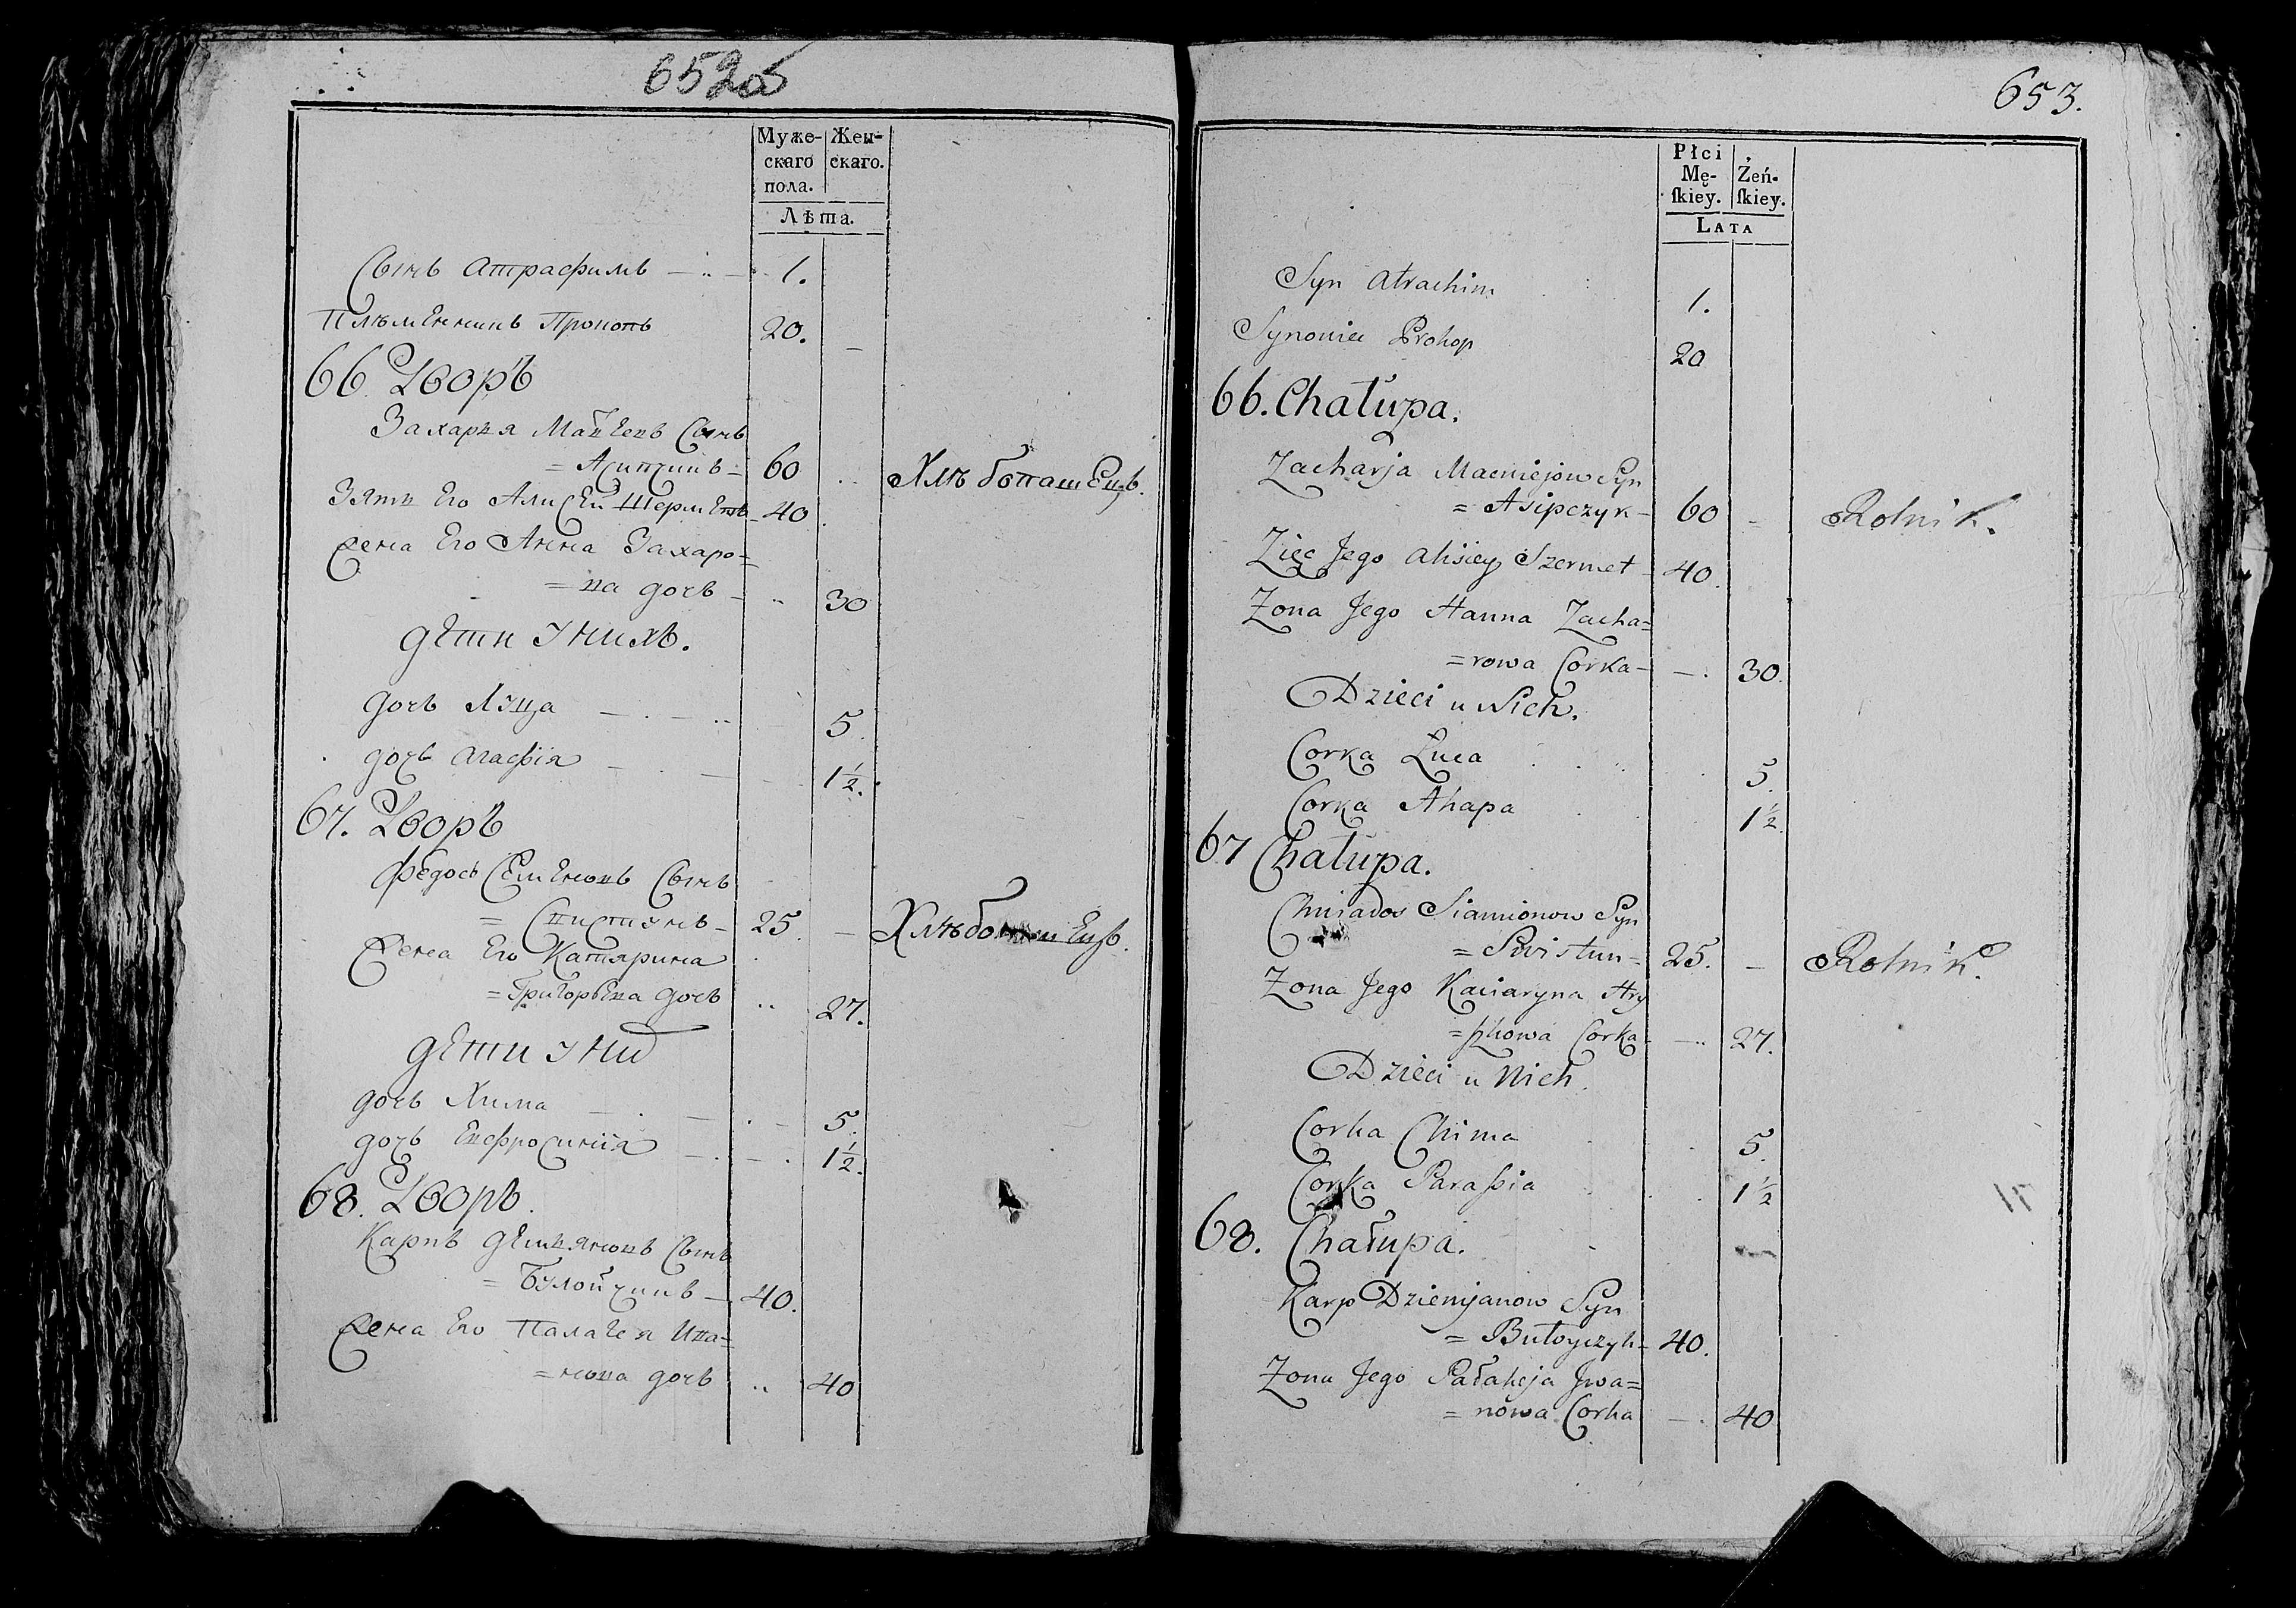 652об
Муже-
скаго
пола.
Жен-
скаго.
Лѣта.
Сынъ Атрафимъ 1.
Племенникъ Прокопъ 20. –
66. Дворъ
Захарья Матвеевъ Сынъ
= Асипчикъ – 60 Хлѣбопашецъ.
Зять Его Алисей Шерметъ – 40
Жена Его Анна Захаро=
= ва дочь – 30
дети у нихъ.
дочь Луца 5.
дочь Агафия 1½.
67. Дворъ
Федосъ Семеновъ Сынъ
= Свистунъ – 25. – Хлѣбопашецъ.
Жена Его Катярина
= Григорьева дочь 27.
дети у них
дочь Хима 5.
дочь Ефросиния 1½.
68. Дворъ.
Карпъ Демьяновъ Сынъ
= Булойчикъ – 40.
Жена Его Палагея Ива=
= нова дочь 40
653.
Płci
Mę-
ſkiey.
Żeń-
ſkiey.
LATA
Syn Atrachim 1.
Synowiec Prokop 20
66. Chałupa.
Zacharja Macwiejow Syn
= Asipczyk – 60 – Rolnik.
Zięć Jego Alisiey Szermet – 40.
Zona Jego Hanna Zacha=
= rowa Corka – 30.
Dzieci u Nich.
Corka Łuca 5.
Corka Ahapa 1½.
67 Chałupa.
Chwiados Siamionow Syn
= Swistun = 25. – Rolnik.
Zona Jego Kaciaryna Hry
= howa Corka – 27.
Dzieci u Nich.
Corka Chima 5.
Corka Paraſsia 1½
68. Chałupa.
Karp Dziemjanow Syn
= Bułoyczyk – 40.
Zona Jego Pałaheja Jwa=
= nowa Corka 40